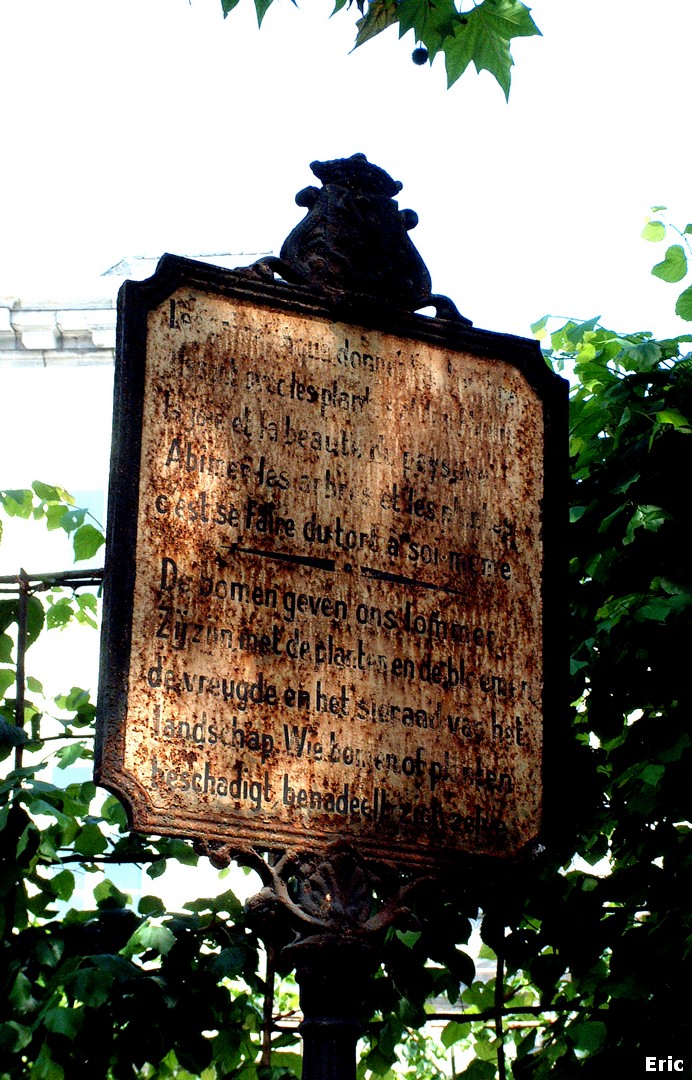 donne
avec les plantes
la joie et la beauté du paysage
Abimer les arbres et les plantes
c'est se faire du tort à soi-même
De bomen geven ons lommer.
Zij zijn met de planten en de bloemen
de vreugde en het sieraad van het
landschap. Wie bomen of planten
beschadigt, benadeelt zich zelve
Eric